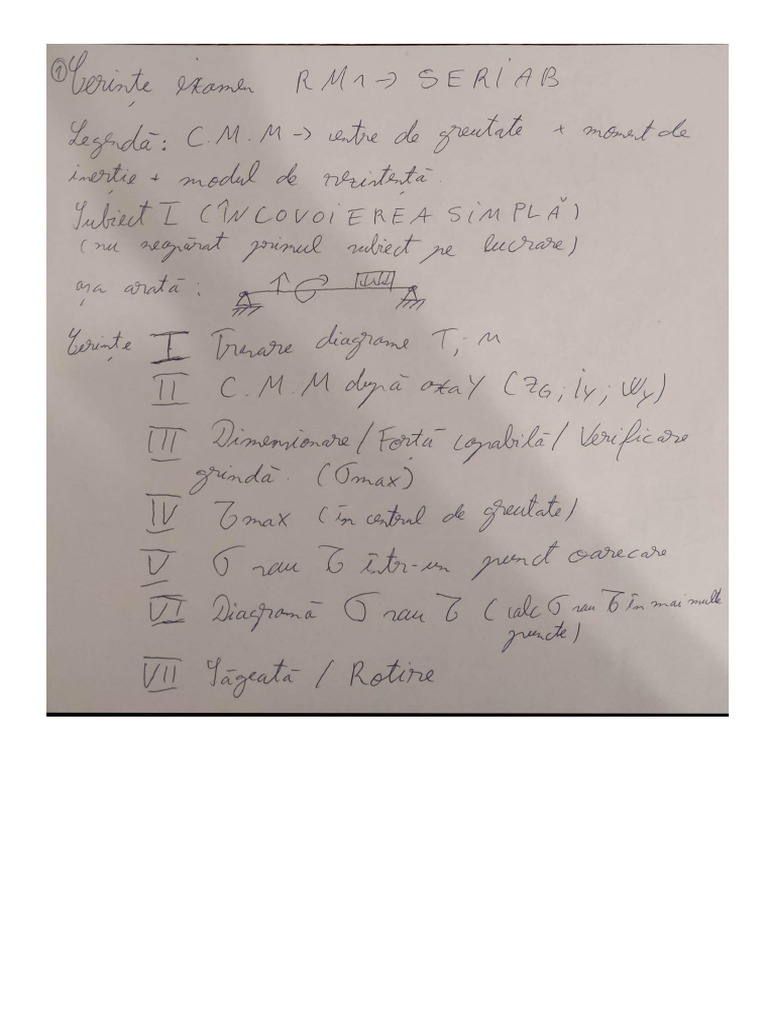 ① Cerințe examen RM1 → SERIA B
Legendă: C.M.M → centre de greutate + moment de
inerție + modul de rezistență.
Subiect I (ÎNCOVOIEREA SIMPLĂ)
(nu neapărat primul subiect pe lucrare)
așa arată:
Cerințe I Trasare diagrame T; M
II C.M.M după axa Y (ZG; iy; Wy)
III Dimensionare / Forță capabilă / Verificare
grindă. (σmax)
IV τmax (în centrul de greutate)
V σ sau τ într-un punct oarecare
VI Diagramă σ sau τ (calc σ sau τ în mai multe
puncte)
VII Săgeată / Rotire